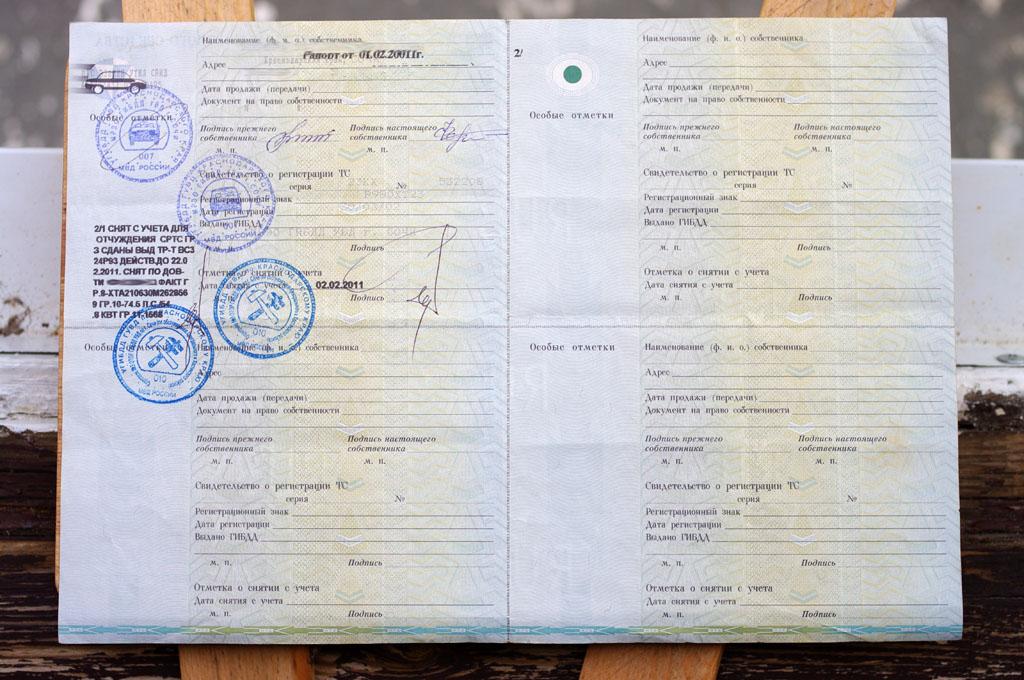 Наименование (ф. и. о.) собственника
Рапорт от 01.02.2001г.
Адрес
Дата продажи (передачи)
Документ на право собственности
Особые отметки
Подпись прежнего собственника
Подпись настоящего собственника
м. п.
м. п.
Свидетельство о регистрации ТС
серия
№
Регистрационный знак
Дата регистрации
Выдано ГИБДД
Подпись
2/1 СНЯТ С УЧЕТА ДЛЯ
ОТЧУЖДЕНИЯ СРТС ГР
З СДАНЫ ВЫД ТР-Т ВС3
24Р93 ДЕЙСТВ.ДО 22.0
2.2011. СНЯТ ПО ДОВ-
ТИ
ФАКТ Г
Р.8-ХТА210630М262856
9 ГР.10-74.6 Л.С./54
.8 КВТ ГР.11-1568
Отметка о снятии с учета
Дата снятия с учета 02.02.2011
Подпись
007
МВД РОССИИ
МВД РОССИИ
010
010
МВД РОССИИ
Особые отметки
Наименование (ф. и. о.) собственника
Адрес
Дата продажи (передачи)
Документ на право собственности
Подпись прежнего собственника
Подпись настоящего собственника
м. п.
м. п.
Свидетельство о регистрации ТС
серия
№
Регистрационный знак
Дата регистрации
Выдано ГИБДД
м. п.
Подпись
Отметка о снятии с учета
Дата снятия с учета
м. п.
Подпись
2/
Особые отметки
Наименование (ф. и. о.) собственника
Адрес
Дата продажи (передачи)
Документ на право собственности
Подпись прежнего собственника
Подпись настоящего собственника
м. п.
м. п.
Свидетельство о регистрации ТС
серия
№
Регистрационный знак
Дата регистрации
Выдано ГИБДД
м. п.
Подпись
Отметка о снятии с учета
Дата снятия с учета
м. п.
Подпись
Особые отметки
Наименование (ф. и. о.) собственника
Адрес
Дата продажи (передачи)
Документ на право собственности
Подпись прежнего собственника
Подпись настоящего собственника
м. п.
м. п.
Свидетельство о регистрации ТС
серия
№
Регистрационный знак
Дата регистрации
Выдано ГИБДД
м. п.
Подпись
Отметка о снятии с учета
Дата снятия с учета
м. п.
Подпись